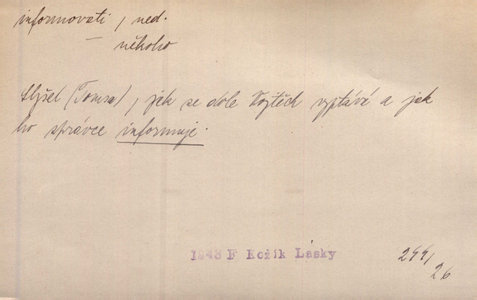 informovati, ned.
— někoho
Slyšel (Tomsa), jak se dole Vojtěch vyptává a jak
ho správce informuje.
1948 F Kožík Lásky
244/
26